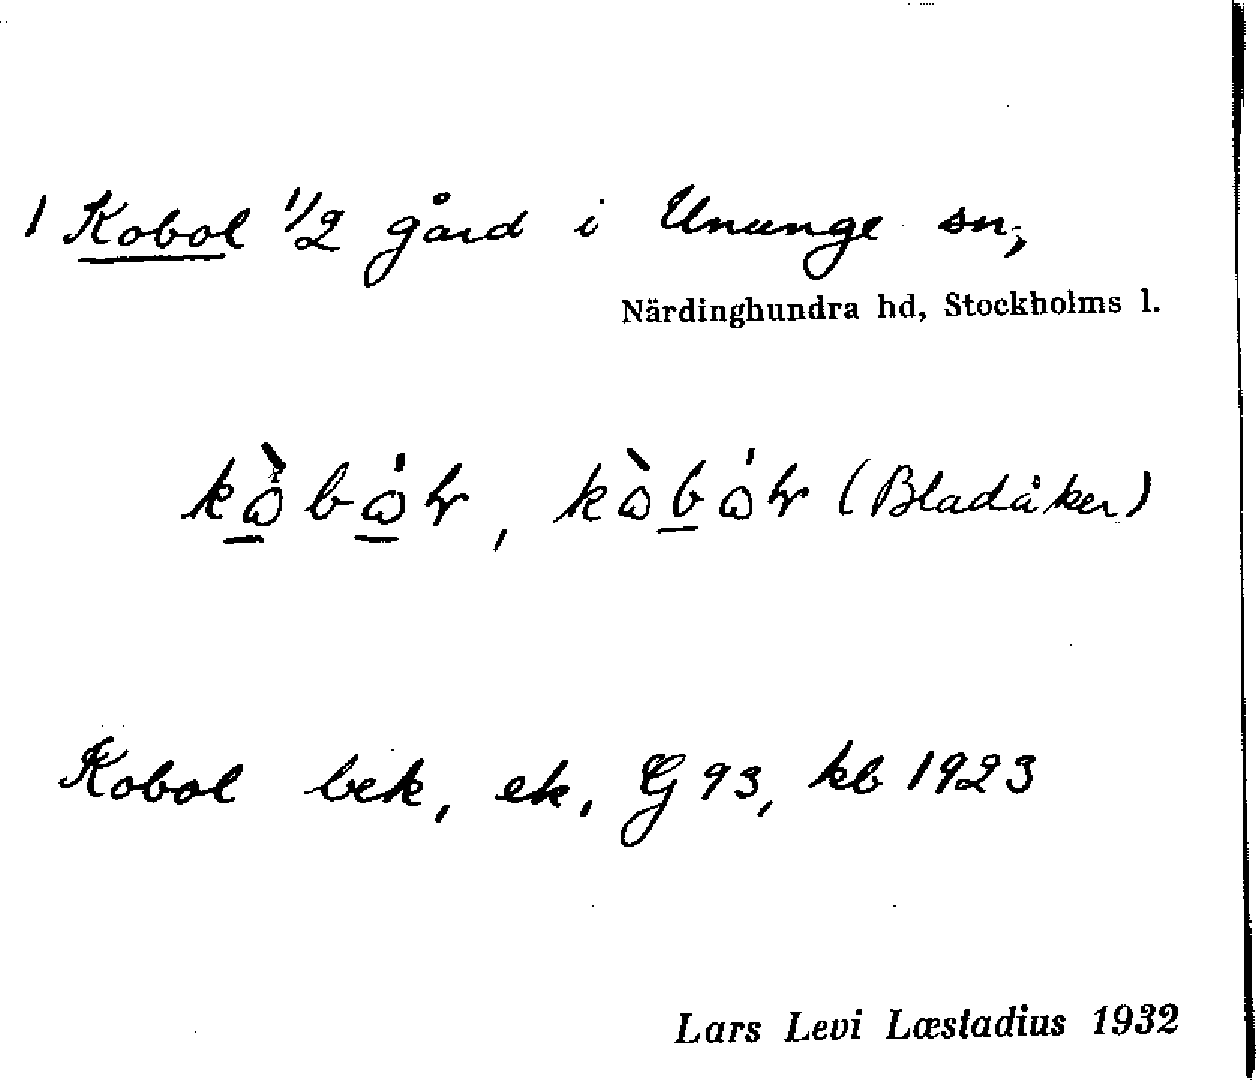 1 Kobol 1/2 gård i Ununge sn,
Närdinghundra hd, Stockholms l.
(Bladåker)
Kobol bek, ek, G 93, kb 1923
Lars Levi Læstadius 1932